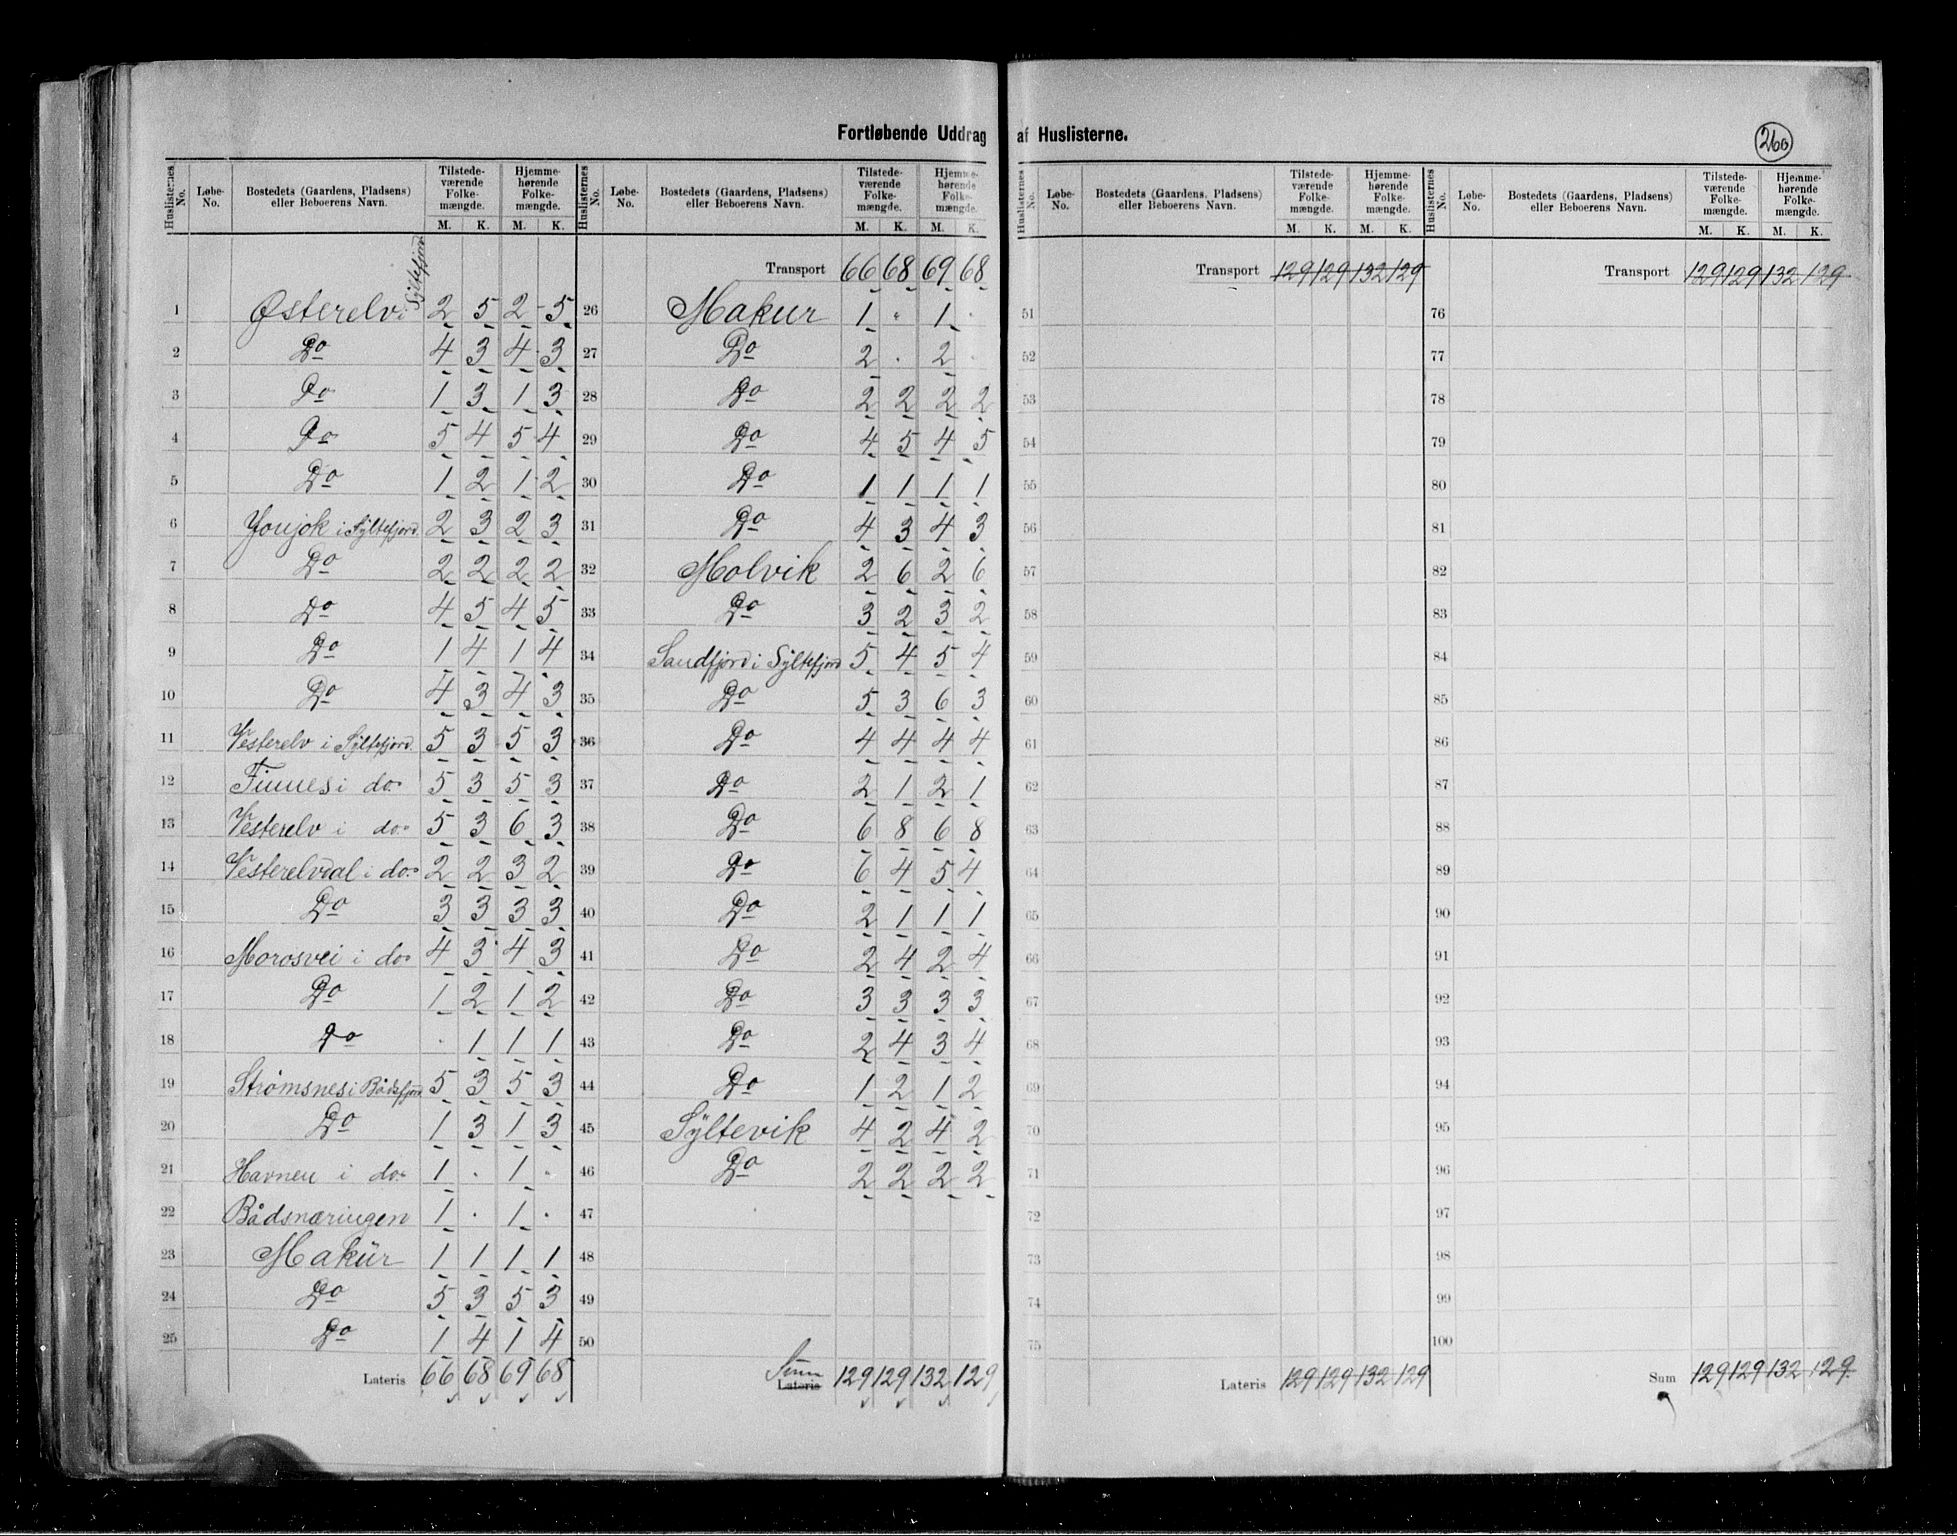 Fortløbende Uddrag af Huslisterne.
260
Huslisternes No. | Løbe-No. | Bostedets (Gaardens, Pladsens) eller Beboerens Navn. | Tilstedeværende Folkemængde. M. K. | Hjemmehørende Folkemængde. M. K.
1 Østerelv i Syltefjord 2 5 2 5
2 Do 4 3 4 3
3 Do 1 3 1 3
4 Do 5 4 5 4
5 Do 1 2 1 2
6 Jonjok i Syltefjord 2 3 2 3
7 Do 2 2 2 2
8 Do 4 5 4 5
9 Do 1 4 1 4
10 Do 4 3 4 3
11 Vesterelv i Syltefjord 5 3 5 3
12 Finnes i do. 5 3 5 3
13 Vesterelv i do. 5 3 6 3
14 Vesterelvdal i do. 2 2 3 2
15 Do 3 3 3 3
16 Morosvei i do. 4 3 4 3
17 Do 1 2 1 2
18 Do . 1 1 1
19 Strømsnes i Bådsfjord 5 3 5 3
20 Do 1 3 1 3
21 Havnen i do. 1 . 1 .
22 Bådsnæringen 1 . 1 .
23 Makür 1 1 1 1
24 Do 5 3 5 3
25 Do 1 4 1 4
Lateris 66 68 69 68
Huslisternes No. | Løbe-No. | Bostedets (Gaardens, Pladsens) eller Beboerens Navn. | Tilstedeværende Folkemængde. M. K. | Hjemmehørende Folkemængde. M. K.
Transport 66 68 69 68
26 Makur 1 . 1 .
27 Do 2 . 2 .
28 Do 2 2 2 2
29 Do 4 5 4 5
30 Do 1 1 1 1
31 Do 4 3 4 3
32 Molvik 2 6 2 6
33 Do 3 2 3 2
34 Sandfjord i Syltefjord 5 4 5 4
35 Do 5 3 6 3
36 Do 4 4 4 4
37 Do 2 1 2 1
38 Do 6 8 6 8
39 Do 6 4 5 4
40 Do 2 1 1 1
41 Do 2 4 2 4
42 Do 3 3 3 3
43 Do 2 4 3 4
44 Do 1 2 1 2
45 Syltevik 4 2 4 2
46 Do 2 2 2 2
47
48
49
50
Sum
Lateris 129 129 132 129
Huslisternes No. | Løbe-No. | Bostedets (Gaardens, Pladsens) eller Beboerens Navn. | Tilstedeværende Folkemængde. M. K. | Hjemmehørende Folkemængde. M. K.
Transport 129 129 132 129
51
52
53
54
55
56
57
58
59
60
61
62
63
64
65
66
67
68
69
70
71
72
73
74
75
Lateris 129 129 132 129
Huslisternes No. | Løbe-No. | Bostedets (Gaardens, Pladsens) eller Beboerens Navn. | Tilstedeværende Folkemængde. M. K. | Hjemmehørende Folkemængde. M. K.
Transport 129 129 132 129
76
77
78
79
80
81
82
83
84
85
86
87
88
89
90
91
92
93
94
95
96
97
98
99
100
Sum 129 129 132 129